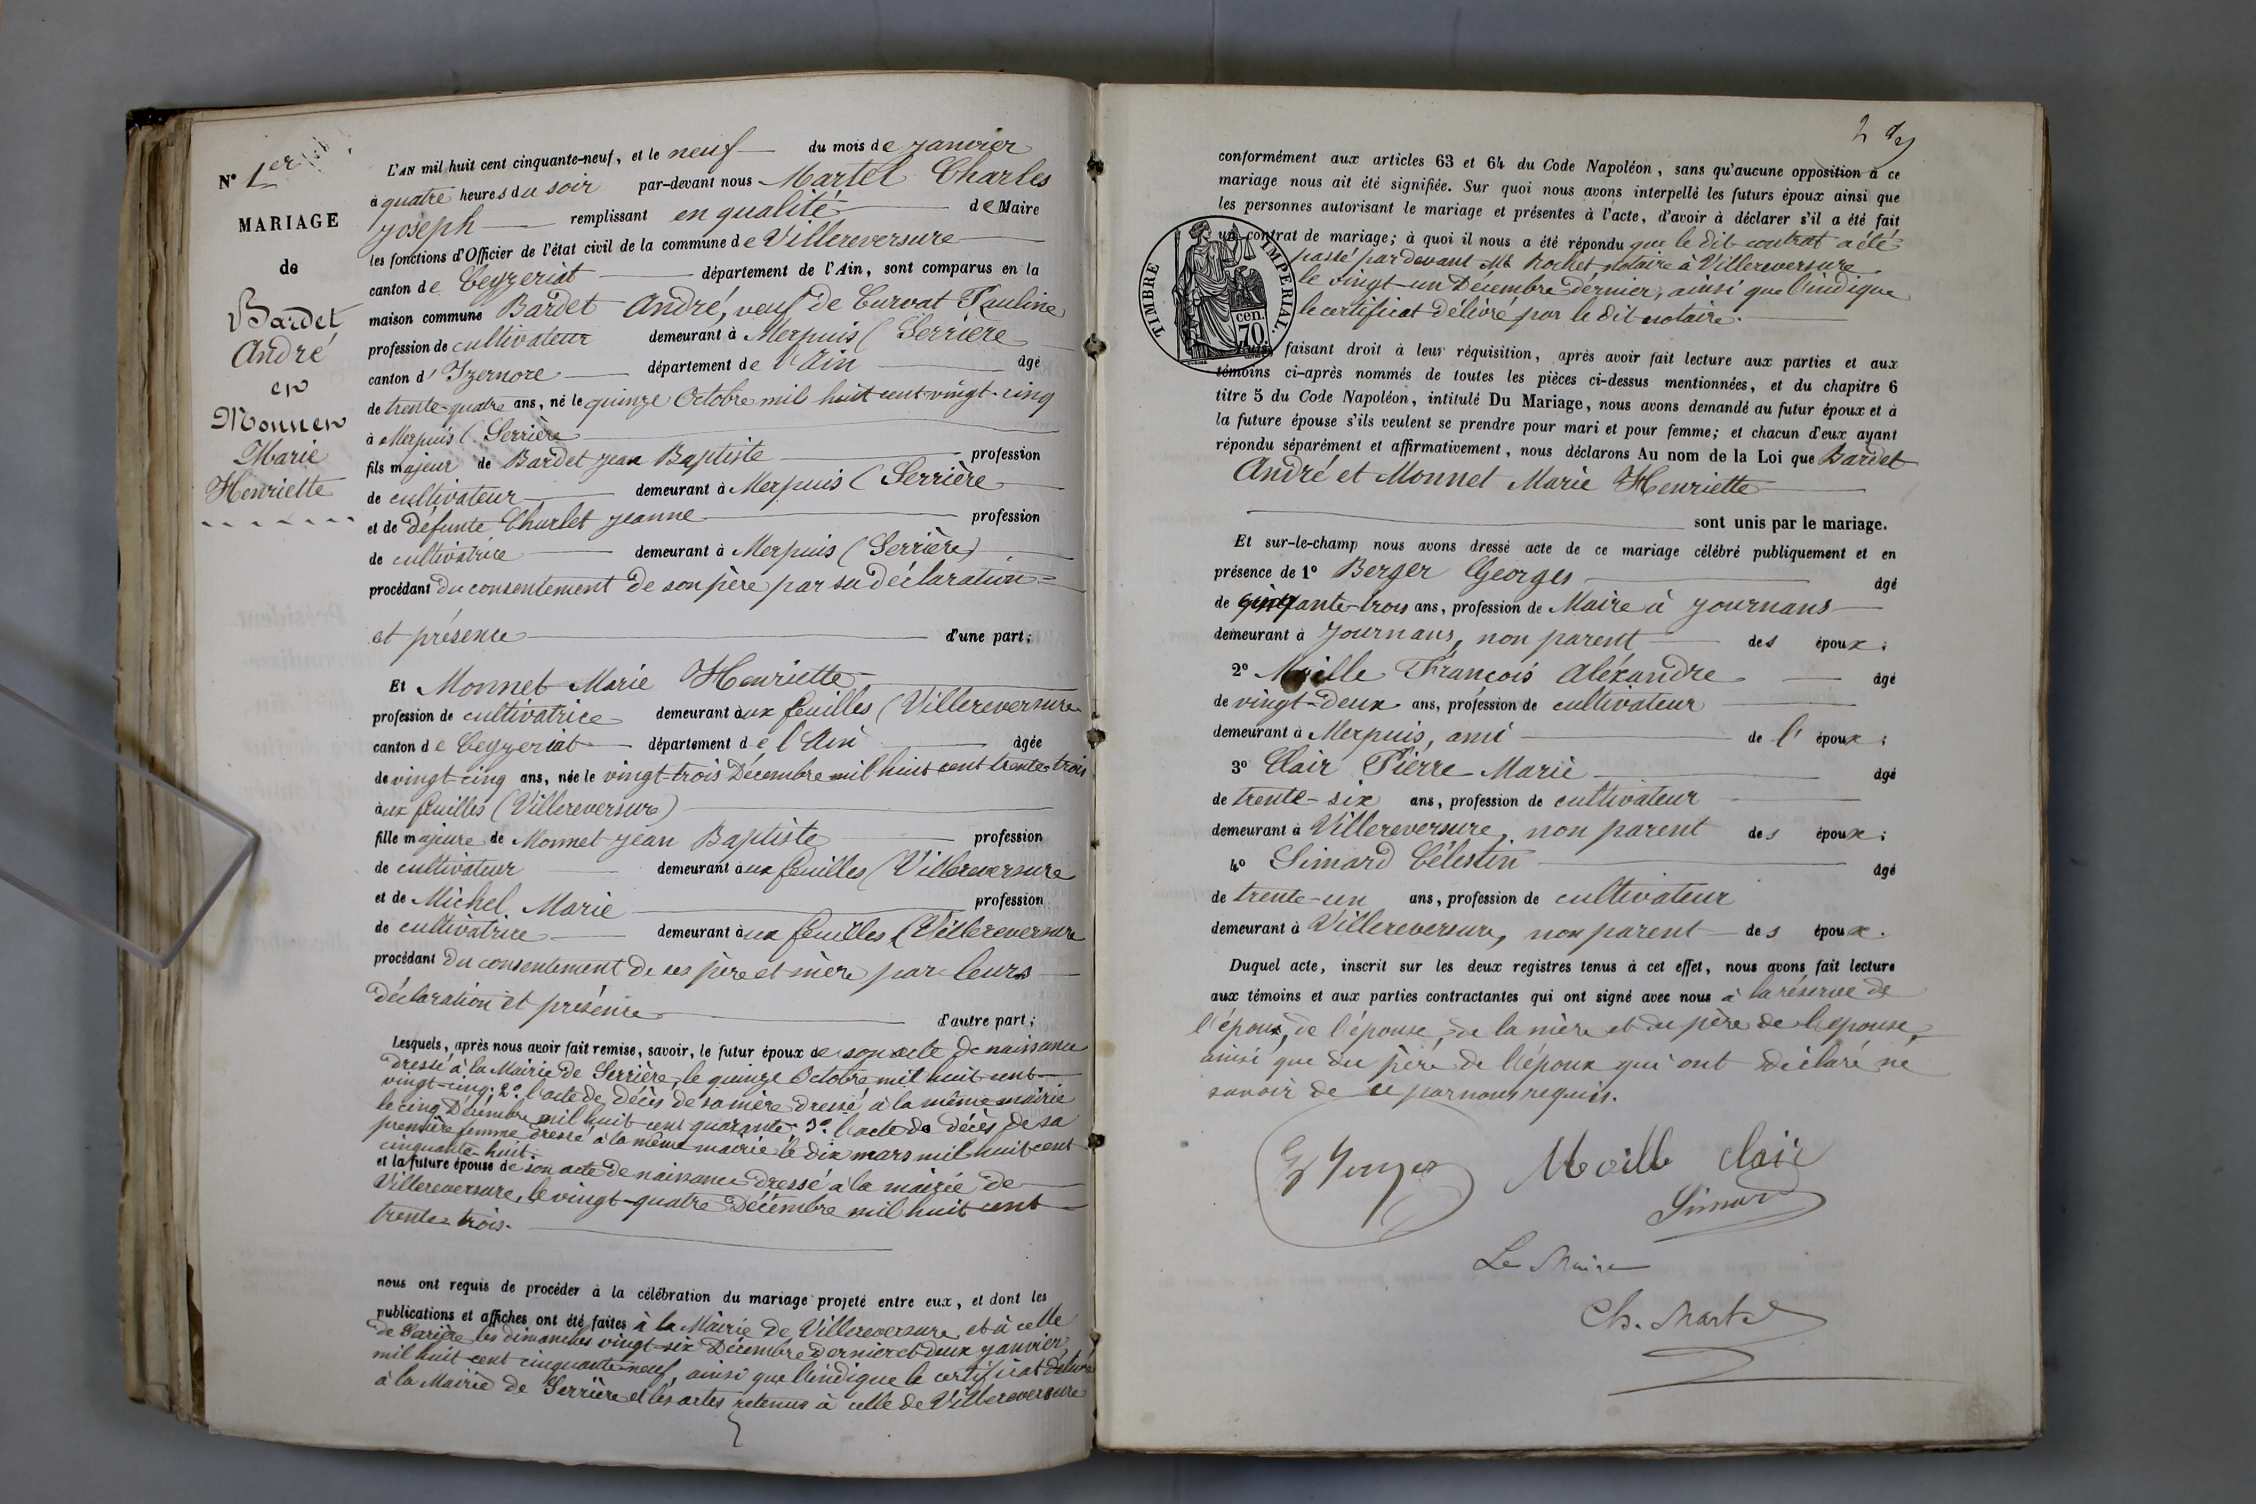 N° 1er
MARIAGE
de
Bardet
André
et
Monnet
Marie
Henriette
L'AN mil huit cent cinquante-neuf, et le neuf du mois de janvier
à quatre heures du soir par-devant nous Martel Charles
joseph remplissant en qualité de Maire
les fonctions d'Officier de l'état civil de la commune de Villereversure
canton de Ceyzeriat département de l'Ain, sont comparus en la
maison commune Bardet André, veuf de Curvat Pauline
profession de cultivateur demeurant à Merpuis (Serrière
canton d'Izernore département de l'Ain âgé
de trente-quatre ans, né le quinze Octobre mil huit cent vingt-cinq
à Merpuis (Serrière
fils majeur de Bardet jean Baptiste profession
de cultivateur demeurant à Merpuis (Serrière
et de défunte Charlet jeanne profession
de cultivatrice demeurant à Merpuis (Serrière)
procédant du consentement de son père par sa déclaration
et présence d'une part;
Et Monnet Marie Henriette
profession de cultivatrice demeurant aux feuilles (Villereversure
canton de Ceyzeriat département de l'Ain âgée
de vingt-cinq ans, née le vingt-trois Décembre mil huit cent trente-trois
aux feuilles (Villereversure)
fille majeure de Monnet jean Baptiste profession
de cultivateur demeurant aux feuilles (Villereversure
et de Michel Marie profession
de cultivatrice demeurant aux feuilles (Villereversure
procédant du consentement de ses père et mère par leurs
déclaration et présence d'autre part;
Lesquels, après nous avoir fait remise, savoir, le futur époux de son acte de naissance
dressé à la Mairie de Serrière, le quinze Octobre mil huit cent
vingt-cinq; 2° l'acte de décès de sa mère dressé à la même mairie
le cinq Décembre mil huit cent quarante; 3° l'acte de décès de sa
première femme dressé à la même mairie le dix mars mil huit cent
cinquante-huit.
et la future épouse de son acte de naissance dressé à la mairie de
Villereversure, le vingt-quatre Décembre mil huit cent
trente-trois.
nous ont requis de procéder à la célébration du mariage projeté entre eux, et dont les
publications et affiches ont été faites à la Mairie de Villereversure et à celle
de Serrière les dimanches vingt-six Décembre dernier et deux janvier
mil huit cent cinquante-neuf, ainsi que l'indique le certificat délivré
à la Mairie de Serrière et les actes retenus à celle de Villereversure
2
conformément aux articles 63 et 64 du Code Napoléon, sans qu'aucune opposition à ce
mariage nous ait été signifiée. Sur quoi nous avons interpellé les futurs époux ainsi que
les personnes autorisant le mariage et présentes à l'acte, d'avoir à déclarer s'il a été fait
un contrat de mariage; à quoi il nous a été répondu que le dit contrat a été
passé par devant Me Rochet, notaire à Villereversure
le vingt-un Décembre dernier, ainsi que l'indique
le certificat délivré par le dit notaire.
TIMBRE IMPERIAL.
70 cen.
Puis, faisant droit à leur réquisition, après avoir fait lecture aux parties et aux
témoins ci-après nommés de toutes les pièces ci-dessus mentionnées, et du chapitre 6
titre 5 du Code Napoléon, intitulé Du Mariage, nous avons demandé au futur époux et à
la future épouse s'ils veulent se prendre pour mari et pour femme; et chacun d'eux ayant
répondu séparément et affirmativement, nous déclarons Au nom de la Loi que Bardet
André et Monnet Marie Henriette
sont unis par le mariage.
Et sur-le-champ nous avons dressé acte de ce mariage célébré publiquement et en
présence de 1° Berger Georges âgé
de cinquante-trois ans, profession de Maire à journans
demeurant à Journans, non parent des époux;
2° Moille François Aléxandre âgé
de vingt-deux ans, profession de cultivateur
demeurant à Merpuis, ami de l'époux;
3° Clair Pierre Marie âgé
de trente-six ans, profession de cultivateur
demeurant à Villereversure, non parent des époux;
4° Simard Célestin âgé
de trente-un ans, profession de cultivateur
demeurant à Villereversure, non parent des époux.
Duquel acte, inscrit sur les deux registres tenus à cet effet, nous avons fait lecture
aux témoins et aux parties contractantes qui ont signé avec nous à la réserve de
l'époux, de l'épouse, de la mère et du père de l'épouse,
ainsi que du père de l'époux qui ont déclaré ne
savoir de ce par nous requis.
Moille Clair
Simard
Le Maire
Ch. Martel